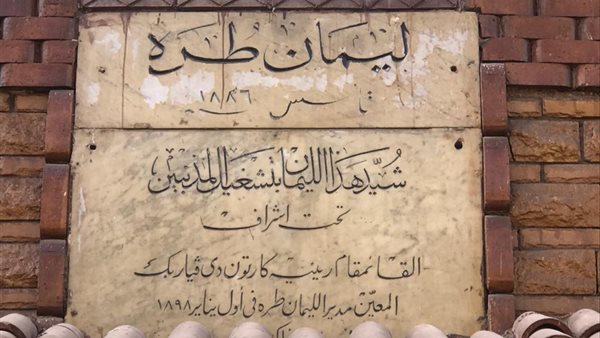 ليمان طره
تأسس ١٨٨٦
شيّد هذا الليمان بتشغيل المذنبين
تحت اشراف
القائمقام رينيه كارتون دى ڤياربك
المعيّن مديرا لليمان طره فى أول يناير ١٨٩٨